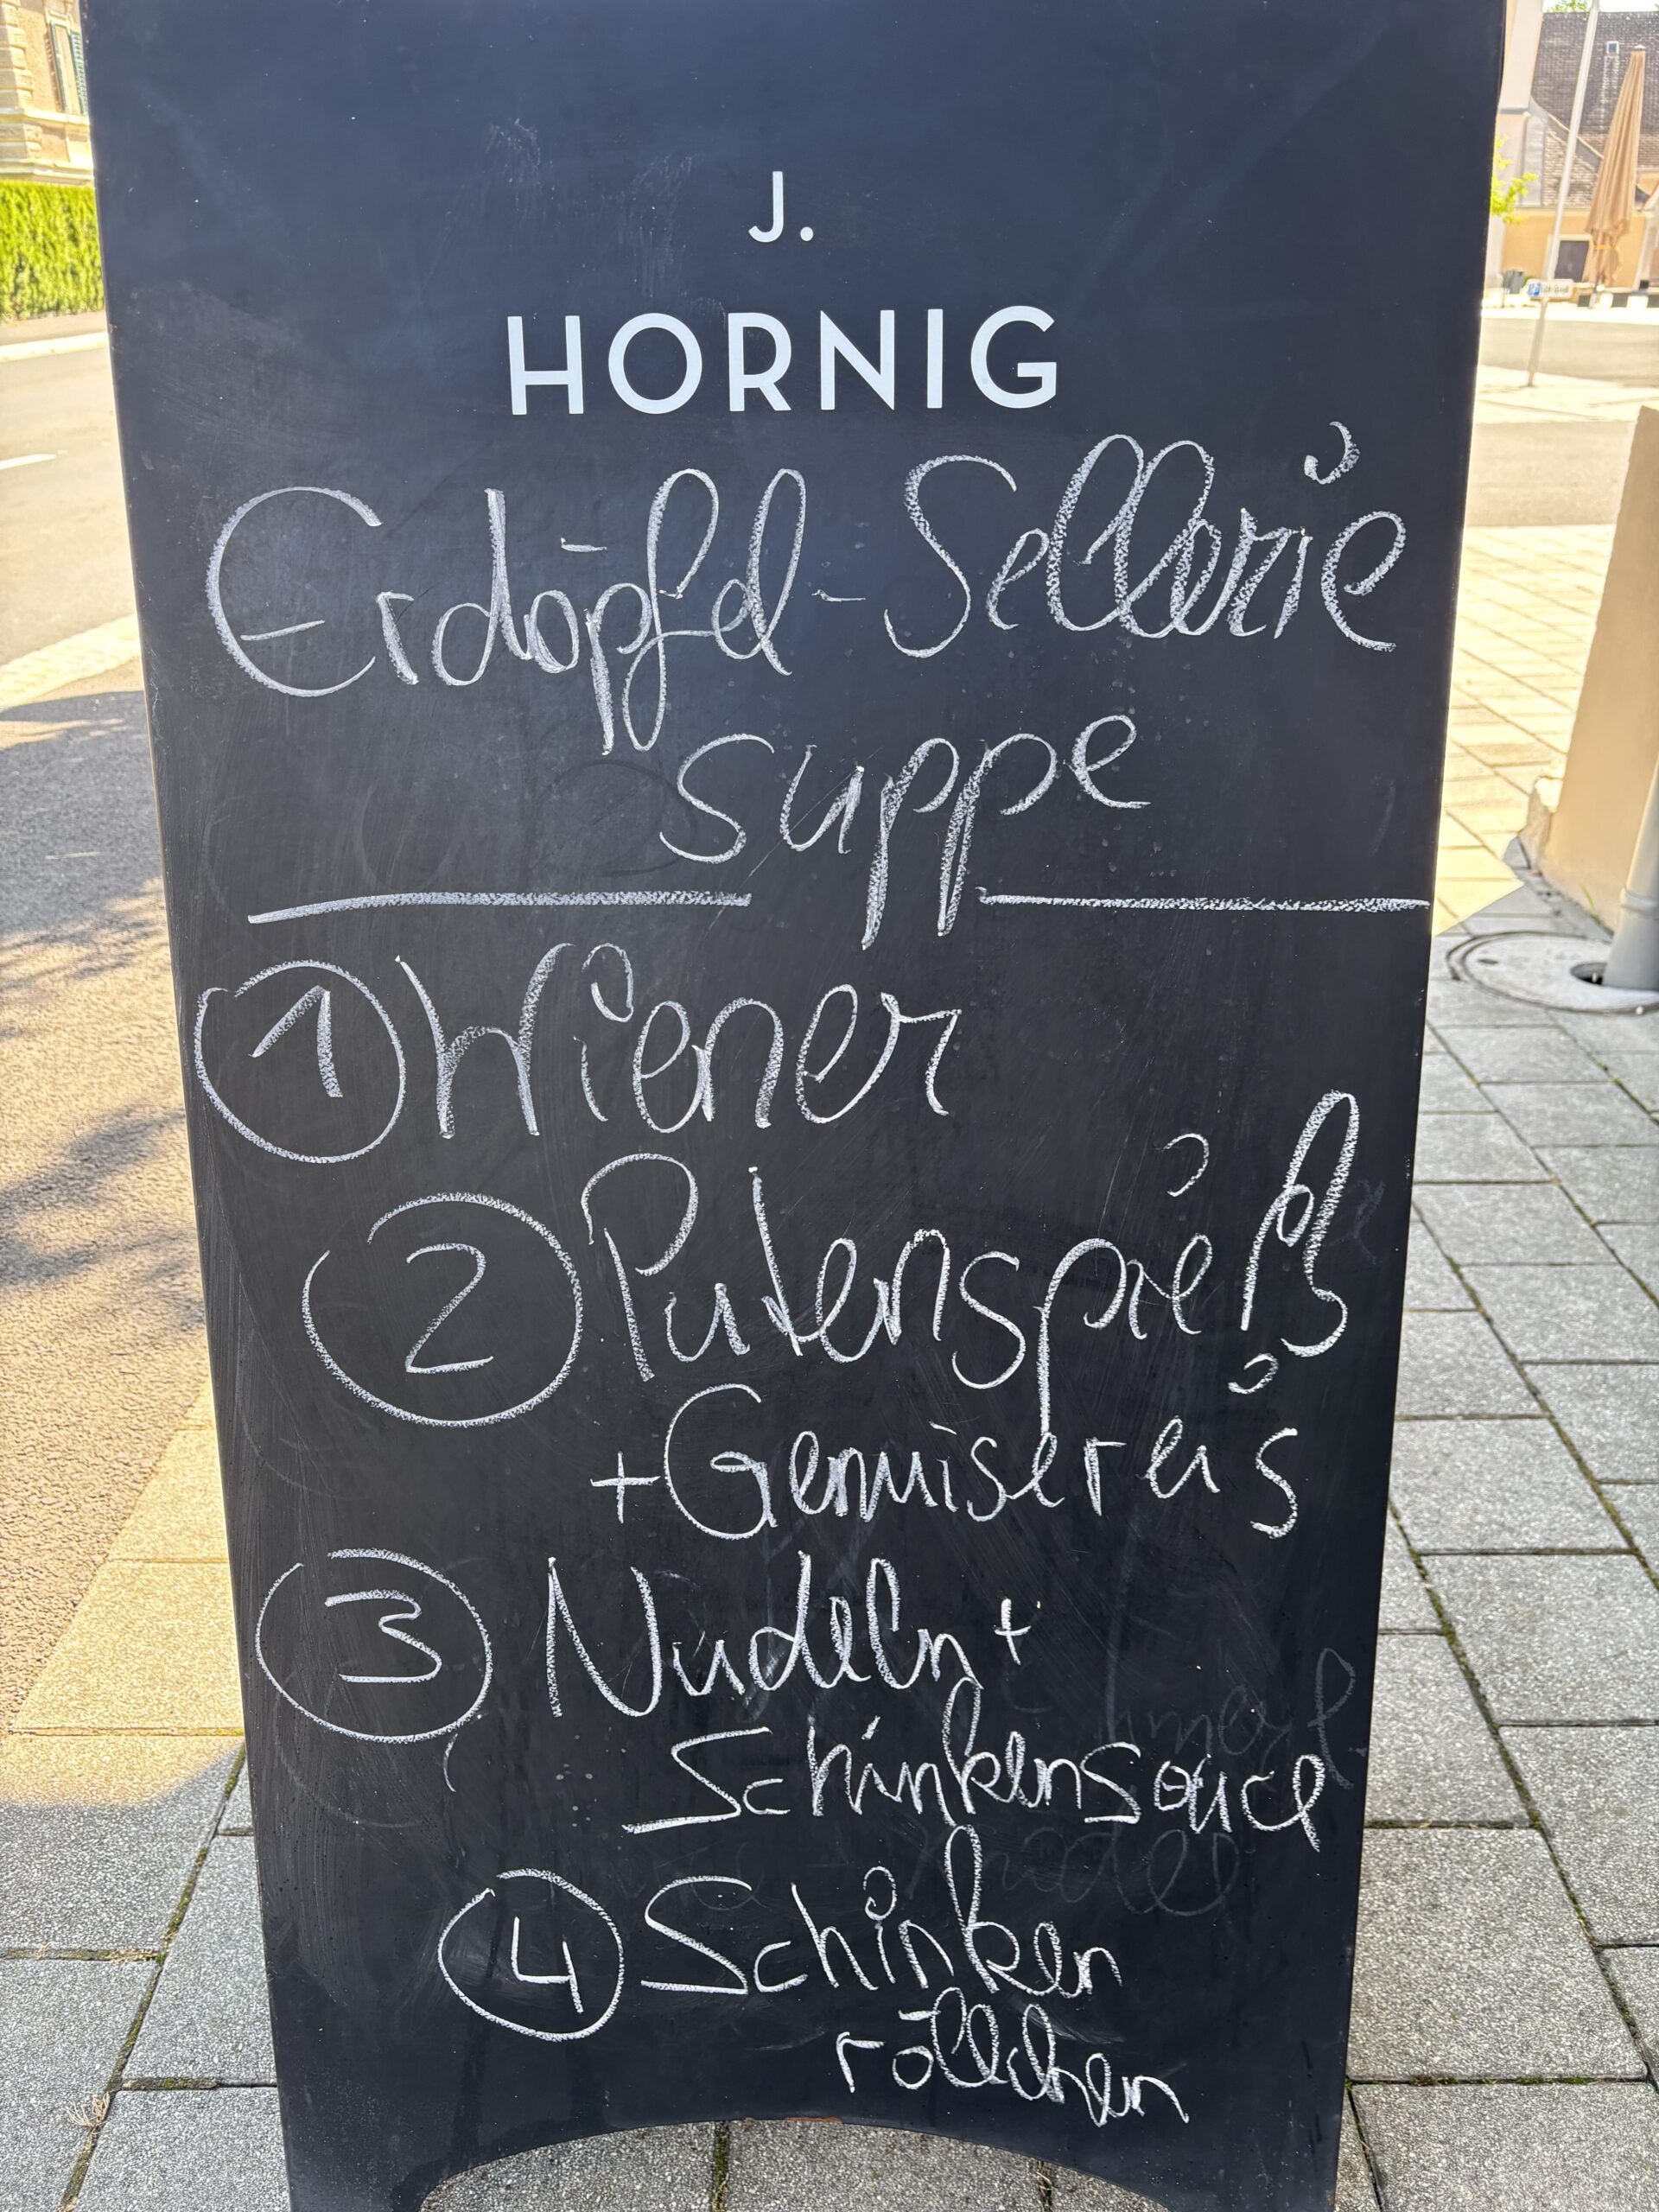 J.
HORNIG
Erdöpfel-Sellerie
suppe
1 Wiener
2 Putenspieß
+ Gemüsereis
3 Nudeln +
Schinkensauce
4 Schinken
röllchen